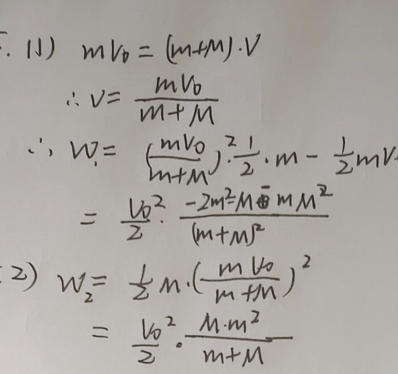 5. (1) mV₀ = (m+M)·V
∴ V = mV₀/(m+M)
∴ W₁ = (mV₀/(m+M))²·1/2·m − 1/2mV
= V₀²/2 · (−2m²M − mM²)/(m+M)²
(2) W₂ = 1/2M·(mV₀/(m+M))²
= V₀²/2 · M·m²/(m+M)